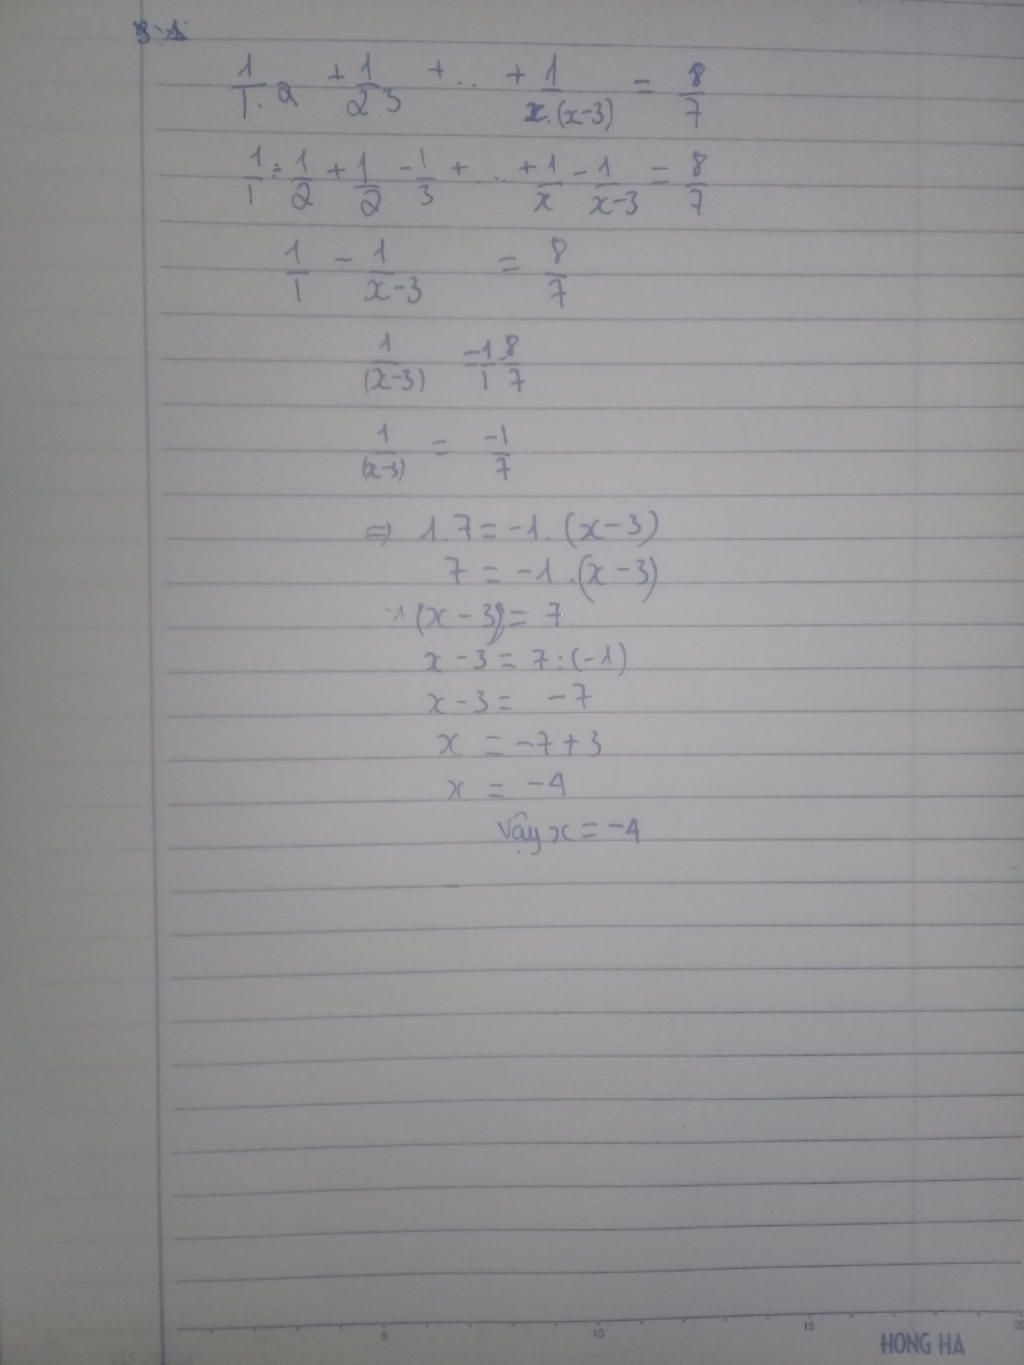 1/1.2 + 1/2 3 + .. + 1/x.(x-3) = 8/7
1/1 - 1/2 + 1/2 - 1/3 + .. + 1/x - 1/x-3 = 8/7
1/1 - 1/x-3 = 8/7
1/(x-3) = 1/1 - 8/7
1/(x-3) = -1/7
=> 1.7 = -1.(x-3)
7 = -1.(x-3)
-1(x-3) = 7
x-3 = 7:(-1)
x-3 = -7
x = -7+3
x = -4
Vậy x = -4
5 10 15 20
HONG HA